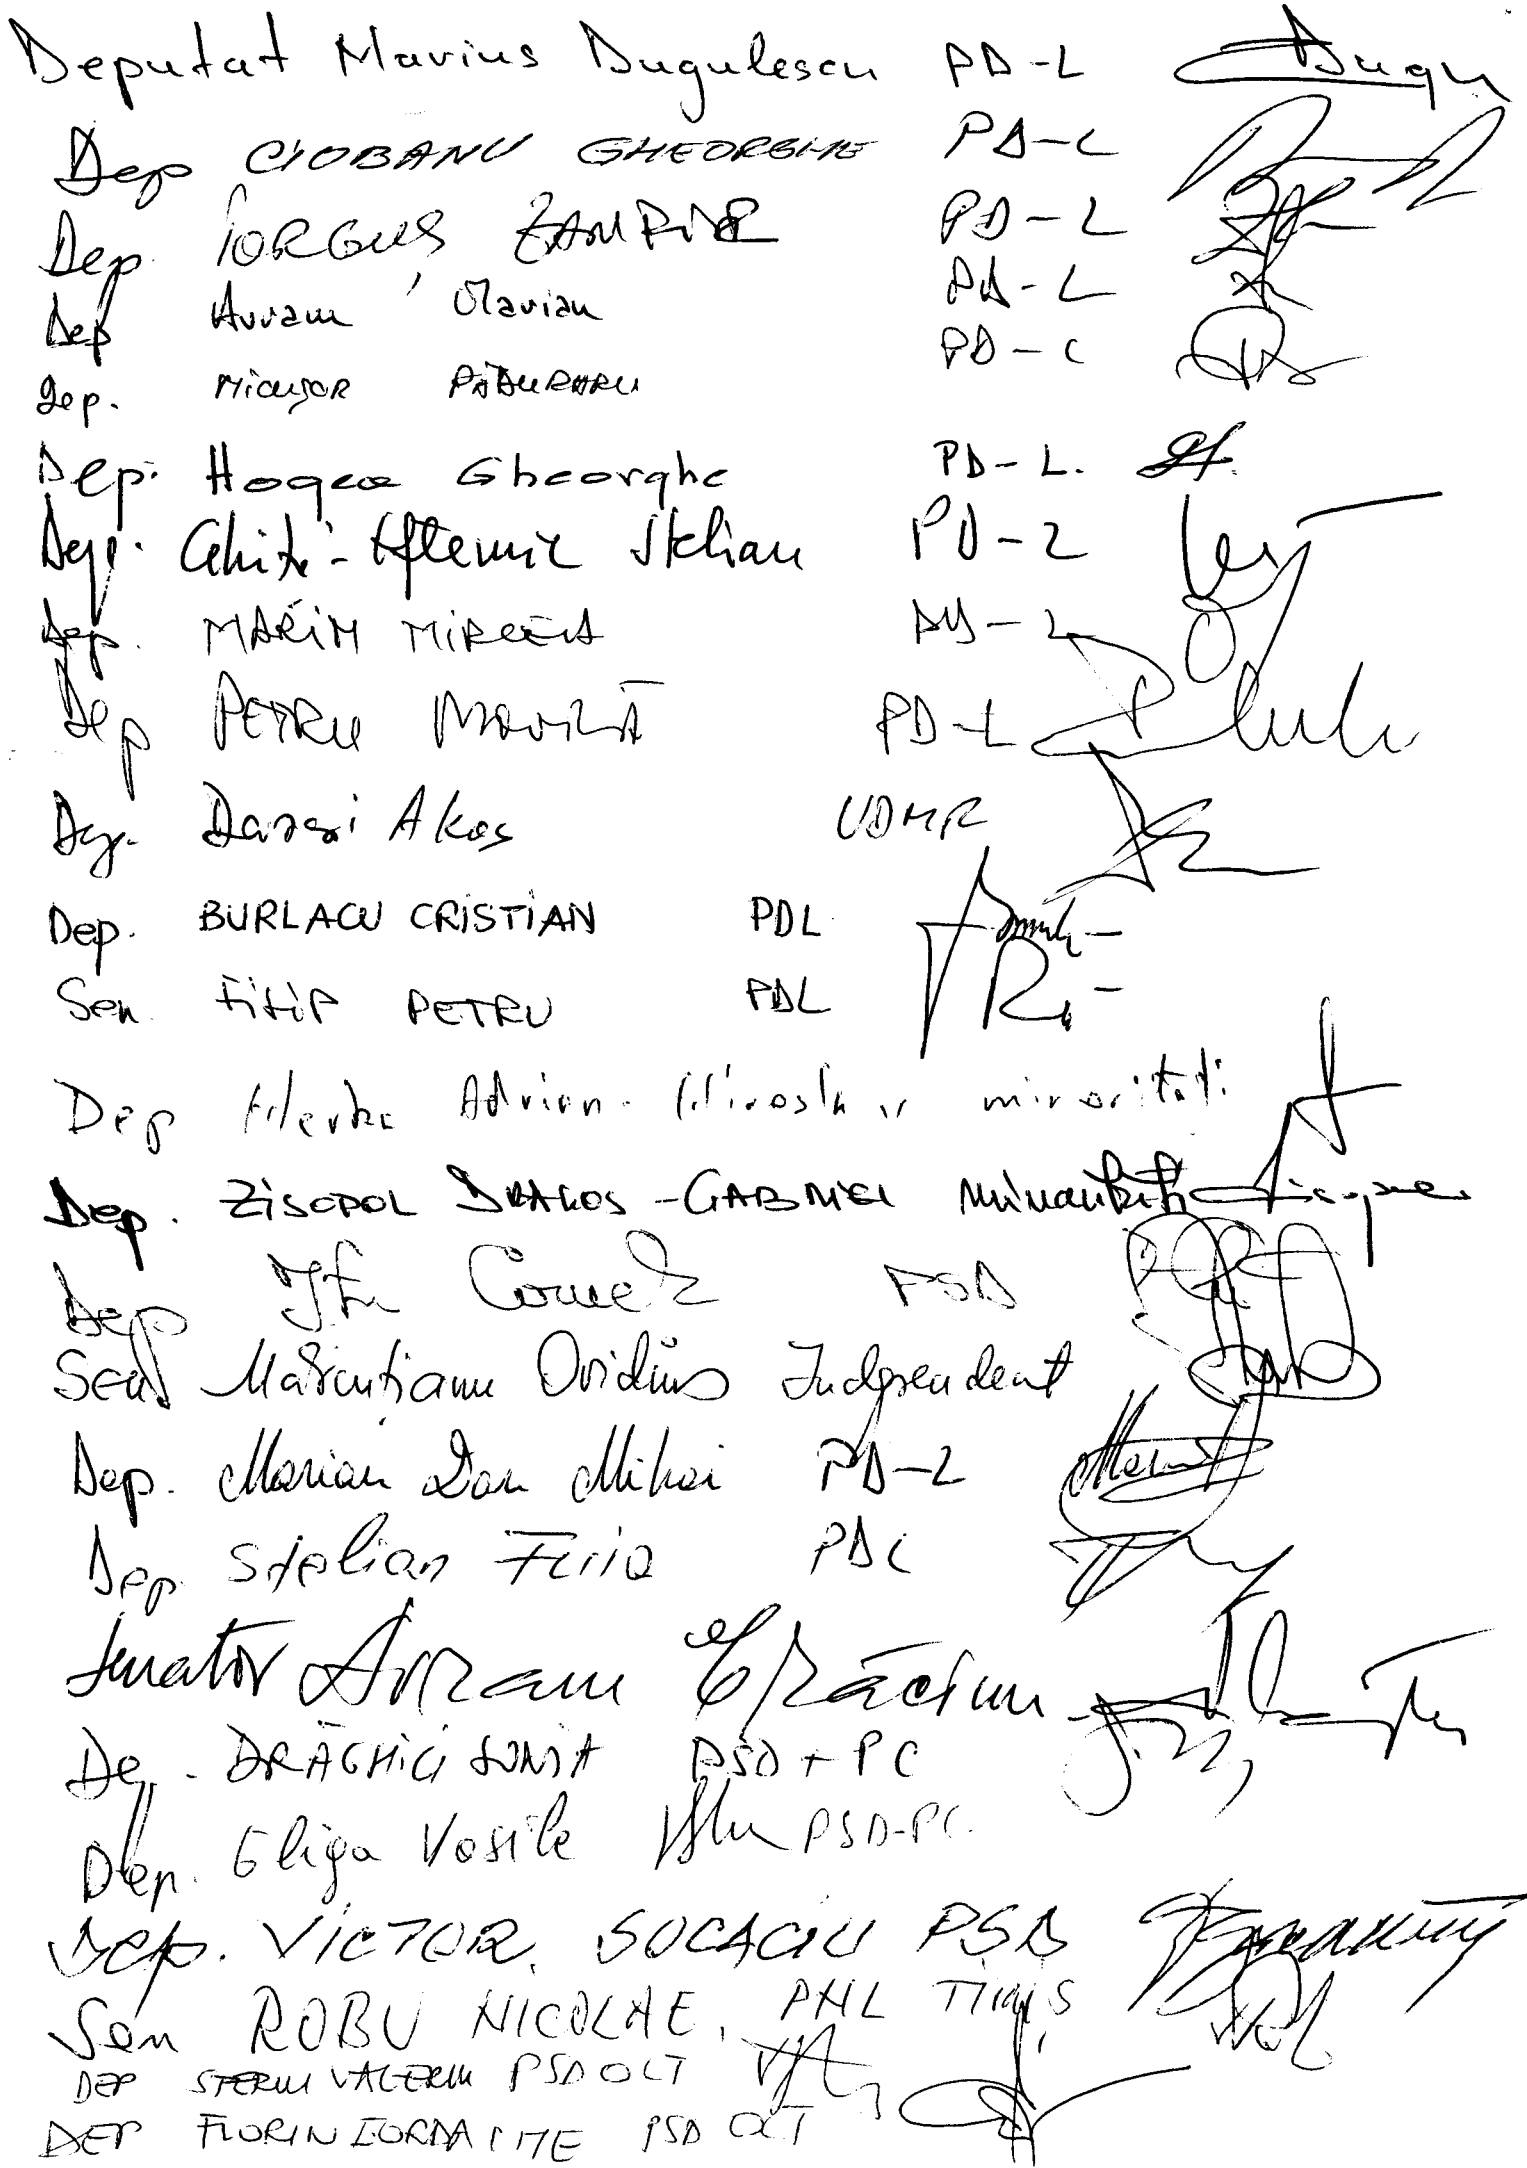 Deputat Marius Dugulescu PD-L Dugu
Dep CIOBANU GHEORGHE PD-L
Dep. IORGUS ZAMFIR PD-L
Dep Avram Marian PD-L
Dep. Nicușor PĂDURARU PD-L
Dep. Hogea Gheorghe PD-L.
Dep. Ghiță-Eftemie Stelian PD-L
Dep. MARIN MIRCEA PD-L
Dep PETRU MOVILĂ PD-L
Dep. Akos UDMR
Dep. BURLACU CRISTIAN PDL
Sen FILIP PETRU PDL
Dep Adrian-Miroslav minoritati
Dep. ZISOPOL DRAGOS-GABRIEL minoritati
Dep Itu Cornel PSD
Sen Ovidius Independent
Dep. Marian Dan Mihai PD-L
Dep. Stelian Fuia PDL
Senator Avram Crăciun
Dep. DRĂGHICI SONIA PSD+PC
Dep. Gliga Vasile PSD-PC
Dep. VICTOR SOCACIU PSD
Sen ROBU NICOLAE, PNL TIMIȘ
DEP STERIU VALERIU PSD OLT
DEP FLORIN IORDACHE PSD OLT